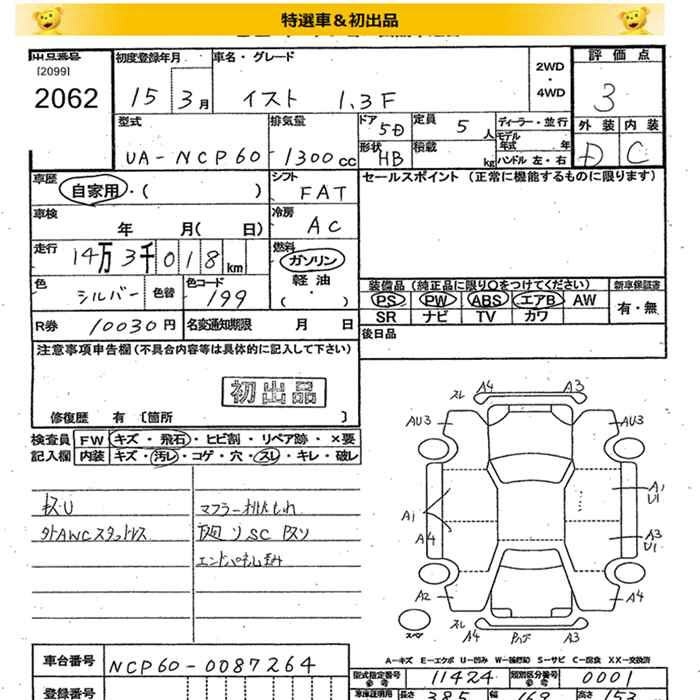 特選車＆初出品
出品番号 初度登録年月 車名・グレード 評価点
[2099]
2062 15 3月 イスト 1.3F 2WD・4WD 3
型式 排気量 ドア 5D 定員 5人 ディーラー・並行 外装 内装
UA-NCP60 1300cc 形状 HB 積載 kg モデル年式 年 D C
ハンドル 左・右
車歴 自家用・( ) シフト FAT セールスポイント (正常に機能するものに限ります)
車検 年 月( 日) 冷房 AC
走行 14万3千018km 燃料 ガソリン
軽油・
色 シルバー 色替 色コード 199 装備品 (純正品に限り○をつけてください) 新車保証書
PS PW ABS エアB AW 有・無
R券 10030円 名変通知期限 月 日 SR ナビ TV カワ
注意事項申告欄(不具合内容等は具体的に記入して下さい) 後日品
初出品
修復歴 有 〔箇所 〕
検査員 FW キズ・飛石・ヒビ割・リペア跡・×要
記入欄 内装 キズ・汚レ・コゲ・穴・スレ・キレ・破レ
キズU マフラー
外AWCスタッドレス リSC
エンドパネル歪み
スレ A4 A3
AU3 AU3
A1 A4 A1 U1
A3 U1
A2 A4
スペア スレ A4 A3
A－キズ E－エクボ U－凹み W－補修跡 S－サビ C－腐食 XX－交換済
車台番号 NCP60-0087264 型式指定番号 参考 11424 類別区分番号 参考 0001
登録番号 車庫証明用 参考 長さ 385 幅 169 高さ 153